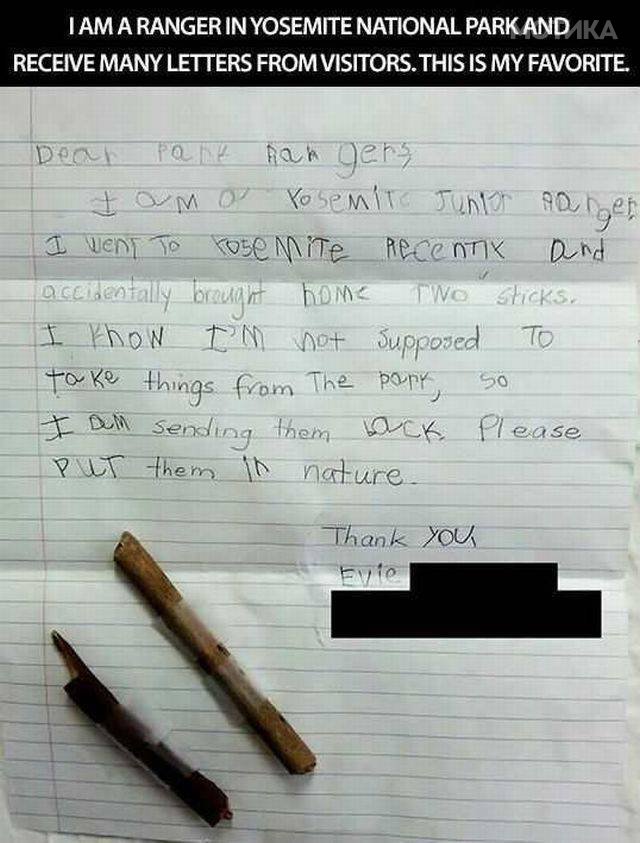 I AM A RANGER IN YOSEMITE NATIONAL PARK AND
МОТИКА
RECEIVE MANY LETTERS FROM VISITORS. THIS IS MY FAVORITE.
Dear Park Rangers,
I am a Yosemite Junior Ranger.
I went to Yosemite recently and
accidentally brought home two sticks.
I know I'm not supposed to
take things from the park, so
I am sending them back. Please
put them in nature.
Thank you,
Evie